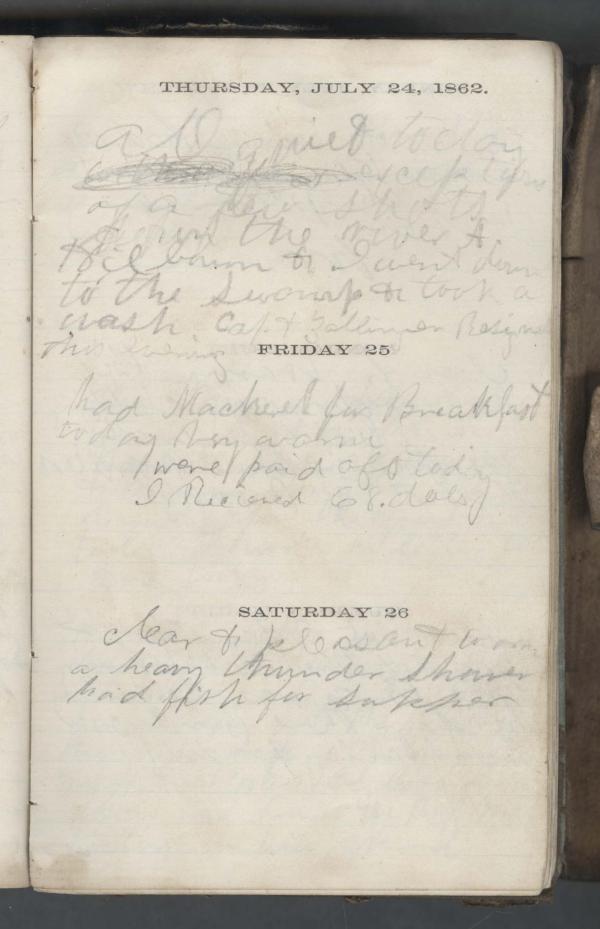 THURSDAY, JULY 24, 1862.
all quiet today
exception
of a few shots
down the river A
& I went down
to the swamp & took a
wash Capt Resigned
this Evening
FRIDAY 25
had Mackerel for Breakfast
today very warm
were paid off today
I Recieved 68. dols
SATURDAY 26
clear & pleasant warm
a heavy thunder shower
had fish for supper